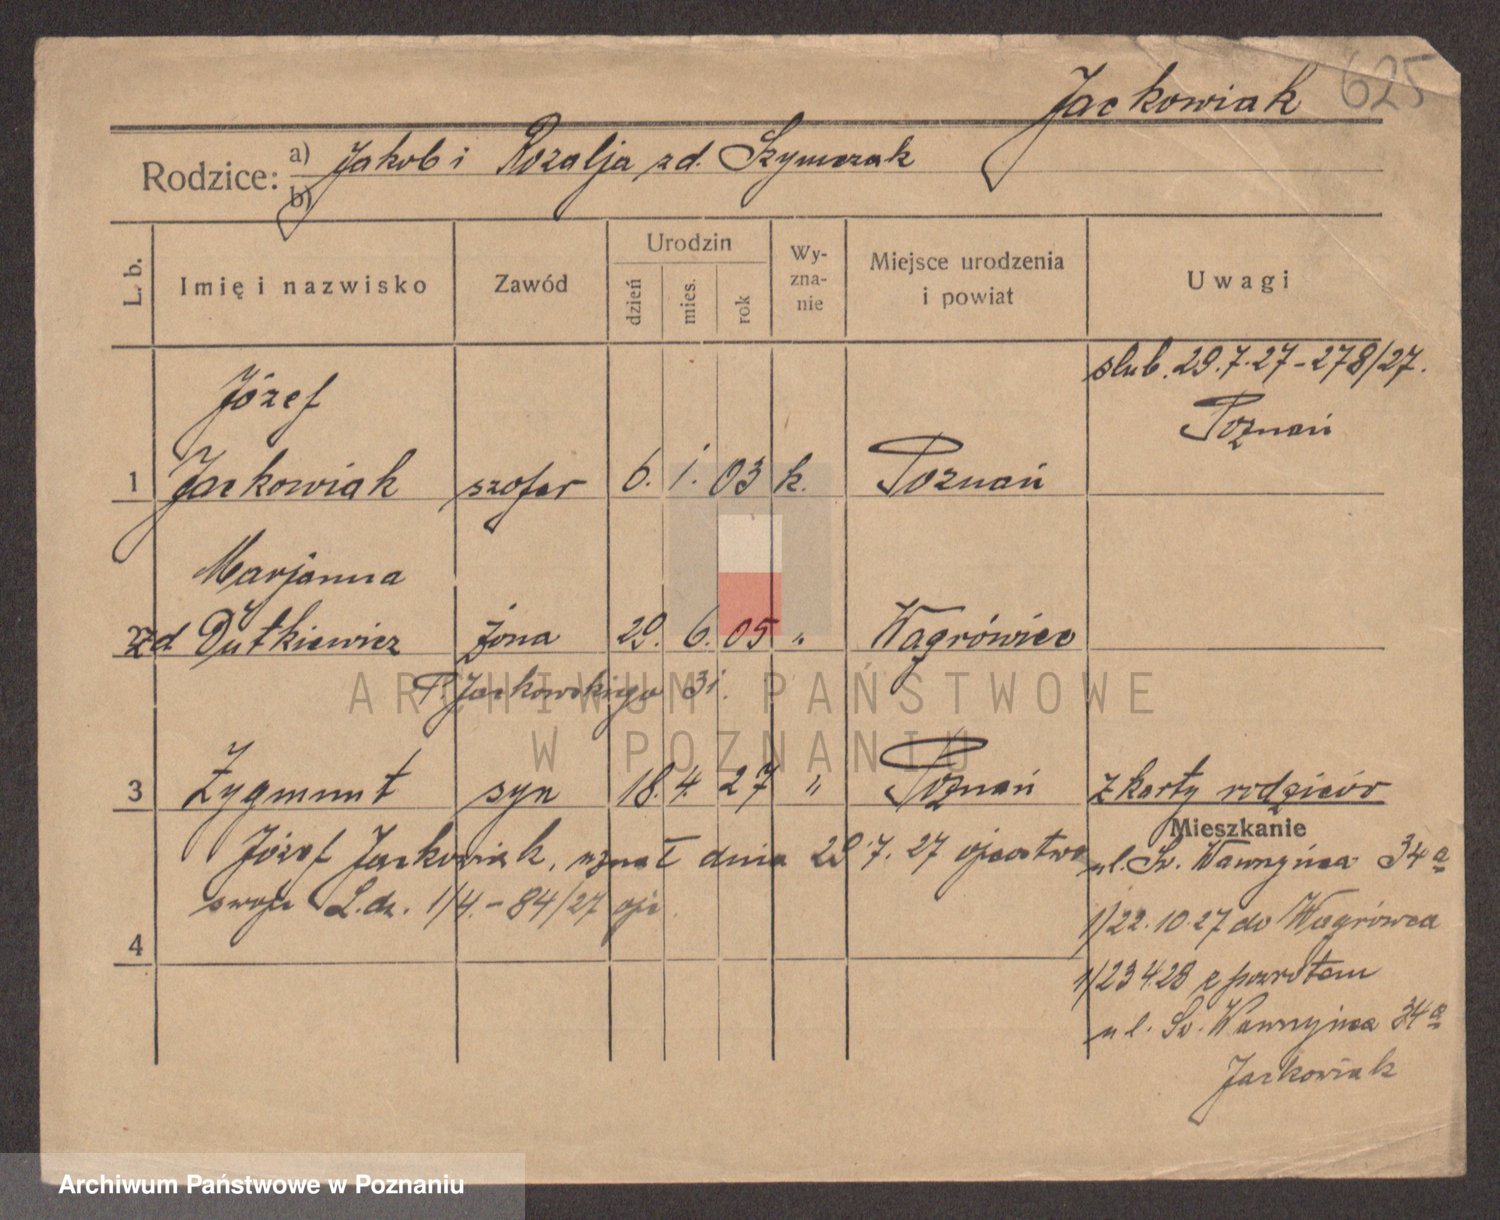 Jackowiak 625
Rodzice: a) Jakob i Rozalja zd. Szymczak
b)
L. b. Imię i nazwisko Zawód Urodzin dzień mies. rok Wy-zna-nie Miejsce urodzenia i powiat Uwagi
slub. 29.7.27 - 278/27.
Józef Poznań
1 Jackowiak szofer 6. 1. 03 k. Poznań
Marjanna
2 zd Dutkiewicz żona 29. 6. 05 " Wągrówiec
P. Jackowskiego 31.
3 Zygmunt syn 18. 4. 27 " Poznań z karty rodziców
Mieszkanie
Józef Jackowiak, uznał dnia 29.7.27 ojcostwo
ul. Św. Wawrzyńca 34a
swoje L.dz. 1/4. - 84/27 ojc
1/22.10.27 do Wągrówca
4
1/23 4.28 z powrotem
ul. Św. Wawrzyńca 34a
Jackowiak
ARCHIWUM PAŃSTWOWE
W POZNANIU
Archiwum Państwowe w Poznaniu